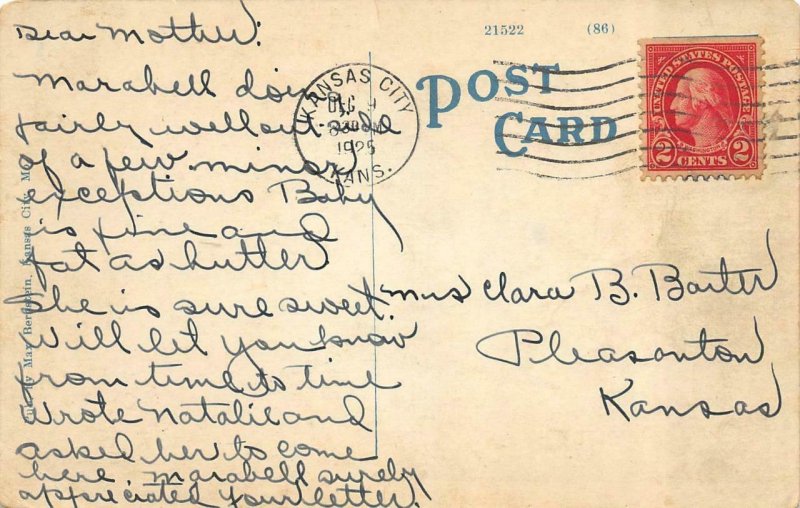 Dear Mother:
Marabell doing
fairly well outside
of a few minor
exceptions Baby
is fine and
fat as butter
She is sure sweet.
Will let you know
from time to time
Wrote Natalie and
asked her to come
here. Marabell surely
appreciated your letter.
21522 (86)
POST
CARD
KANSAS CITY
DEC 9
1925
KANS.
UNITED STATES POSTAGE
2 CENTS 2
Mrs Clara B. Baxter
Pleasanton
Kansas
by Max Bernstein, Kansas City, Mo.